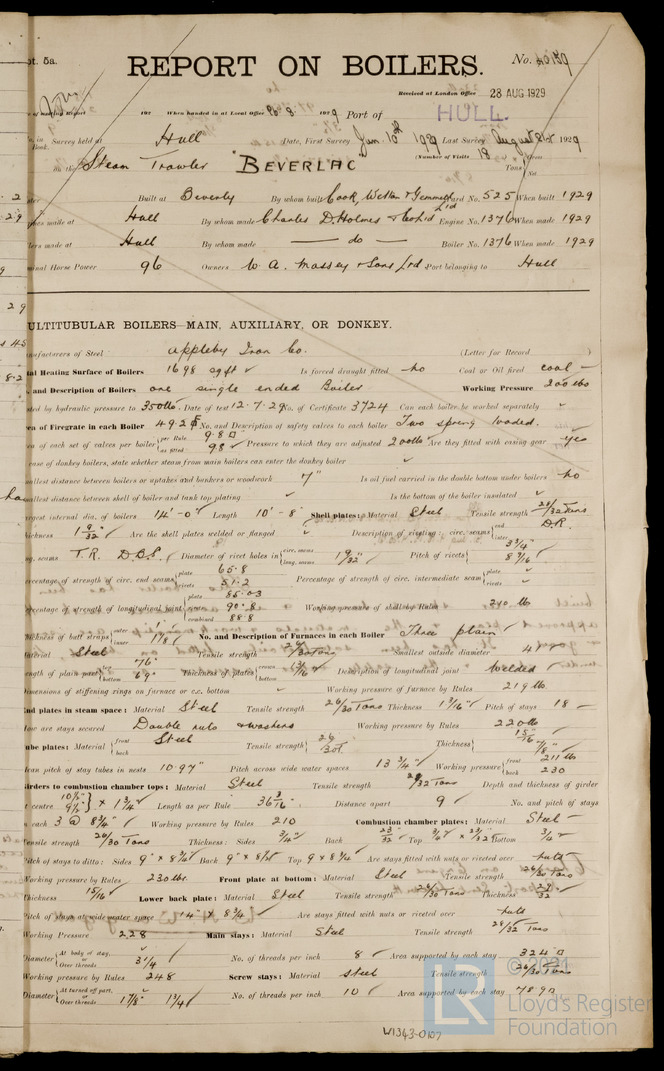 pt. 5a.
REPORT ON BOILERS.
No. 40159
Received at London Office 28 AUG 1929
When handed in at Local Office 26.8.1929 Port of HULL.
Survey held at Hull Date, First Survey Jan. 10th 1929 Last Survey August 21st 1929
(Number of Visits 18)
on the Steam Trawler "BEVERLAC" Tons
Built at Beverley By whom built Cook, Welton & Gemmell Ltd Yard No. 525 When built 1929
Engines made at Hull By whom made Charles D. Holmes & Co Ltd Engine No. 1376 When made 1929
Boilers made at Hull By whom made do Boiler No. 1376 When made 1929
Nominal Horse Power 96 Owners W. A. Massey & Sons Ltd. Port belonging to Hull
MULTITUBULAR BOILERS—MAIN, AUXILIARY, OR DONKEY.
Manufacturers of Steel Appleby Iron Co. (Letter for Record
Total Heating Surface of Boilers 1698 sq ft Is forced draught fitted no Coal or Oil fired coal
No. and Description of Boilers one single ended Boiler Working Pressure 200 lbs
Tested by hydraulic pressure to 350 lbs. Date of test 12.7.29 No. of Certificate 3724 Can each boiler be worked separately
Area of Firegrate in each Boiler 49.2 No. and Description of safety valves to each boiler Two spring loaded.
Area of each set of valves per boiler {per Rule 9.8 as fitted 9.8 Pressure to which they are adjusted 200 lbs Are they fitted with easing gear yes
In case of donkey boilers, state whether steam from main boilers can enter the donkey boiler
Smallest distance between boilers or uptakes and bunkers or woodwork 7" Is oil fuel carried in the double bottom under boilers no
Smallest distance between shell of boiler and tank top plating Is the bottom of the boiler insulated
Largest internal dia. of boilers 14'-0" Length 10'-8" Shell plates: Material Steel Tensile strength 28/32 Tons
Thickness 1 9/32 Are the shell plates welded or flanged Description of riveting: circ. seams {end D.R. inter
long. seams T.R. D.B.S. Diameter of rivet holes in {circ. seams long. seams 1 9/32" Pitch of rivets {3 3/4" 8 7/16"
Percentage of strength of circ. end seams {plate 65.8 rivets 51.2 Percentage of strength of circ. intermediate seam {plate rivets
Percentage of strength of longitudinal joint {plate 85.03 rivets 90.8 combined 88.8 Working pressure of shell by Rules 210 lb
Thickness of butt straps {outer inner 1 1/8 No. and Description of Furnaces in each Boiler Three plain
Material Steel Tensile strength 26/30 Tons Smallest outside diameter
Length of plain part {top 76" bottom 69" Thickness of plates {crown bottom 13/16" Description of longitudinal joint Welded
Dimensions of stiffening rings on furnace or c.c. bottom Working pressure of furnace by Rules 219 lb
End plates in steam space: Material Steel Tensile strength 26/30 Tons Thickness 1 3/16" Pitch of stays 18
How are stays secured Double nuts & washers Working pressure by Rules 220 lb
Tube plates: Material {front back Steel Tensile strength {26/30 T Thickness {15/16" 7/8"
Mean pitch of stay tubes in nests 10.97" Pitch across wide water spaces 13 3/4" Working pressure {front 211 lb back 230
Girders to combustion chamber tops: Material Steel Tensile strength 28/32 Tons Depth and thickness of girder
at centre × 1 3/4 Length as per Rule Distance apart 9 No. and pitch of stays
in each 3 @ 8 3/4" Working pressure by Rules 210 Combustion chamber plates: Material Steel
Tensile strength 26/30 Tons Thickness: Sides 3/4" Back 23/32 Top 3/4" Bottom 3/4
Pitch of stays to ditto: Sides 9" × 8 3/4" Back 9" × Top 9 × 8 3/4 Are stays fitted with nuts or riveted over nuts
Working pressure by Rules 230 lbs. Front plate at bottom: Material Steel Tensile strength 26/30 Tons
Thickness 15/16" Lower back plate: Material Steel Tensile strength 26/30 Tons Thickness 27/32
Pitch of stays at wide water space 14 × 8 3/4 Are stays fitted with nuts or riveted over nuts
Working Pressure 228 Main stays: Material Steel Tensile strength 28/32 Tons
Diameter {At body of stay, or Over threads 3 1/4 No. of threads per inch 8 Area supported by each stay 324
Working pressure by Rules 248 Screw stays: Material Steel Tensile strength 26/30 Tons
Diameter {At turned off part, or Over threads 1 7/8" 1 3/4 No. of threads per inch 10 Area supported by each stay 78.9
W1343-0107
© 2021
LR
Lloyd's Register
Foundation